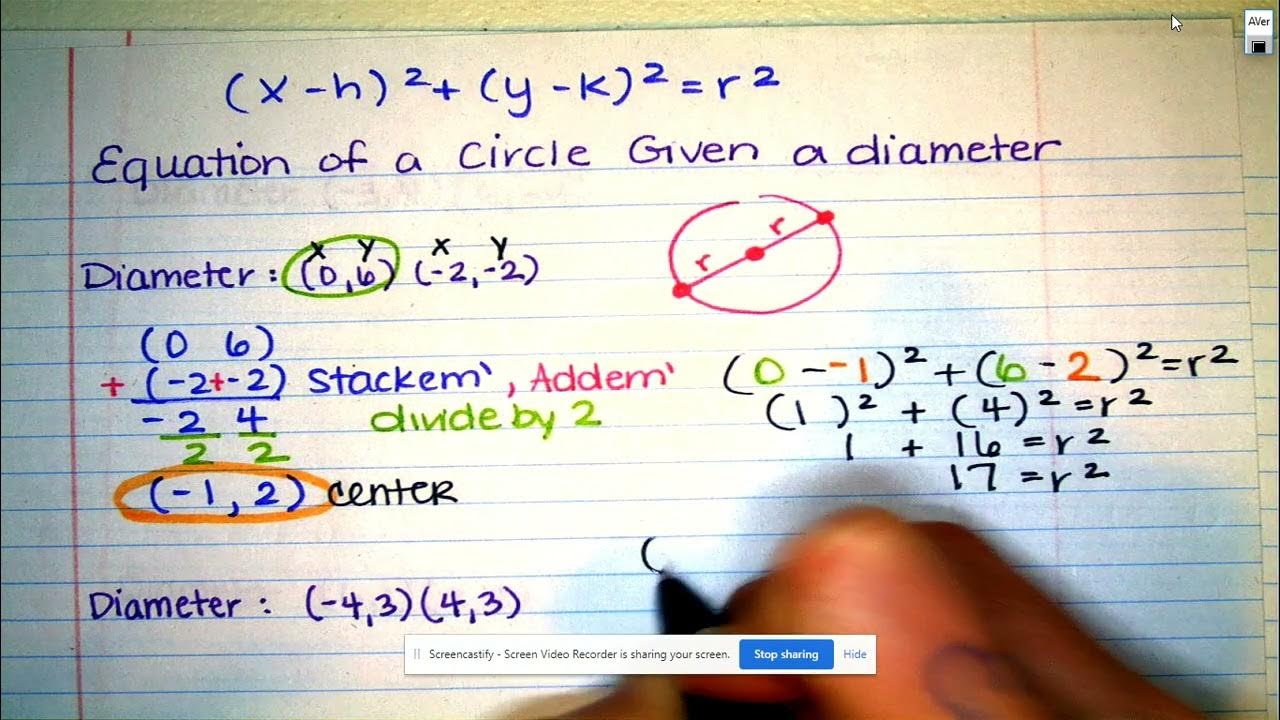 AVer
(x-h)²+(y-k)²=r²
Equation of a Circle Given a diameter
x y x y
Diameter: (0,6) (-2,-2)
r r
(0 6)
+ (-2+-2) Stackem', Addem'
-2 4 divide by 2
2 2
(-1, 2) center
(0--1)²+(6-2)²=r²
(1)²+(4)²=r²
1 + 16 =r²
17 =r²
(
Diameter: (-4,3)(4,3)
Screencastify - Screen Video Recorder is sharing your screen. Stop sharing Hide